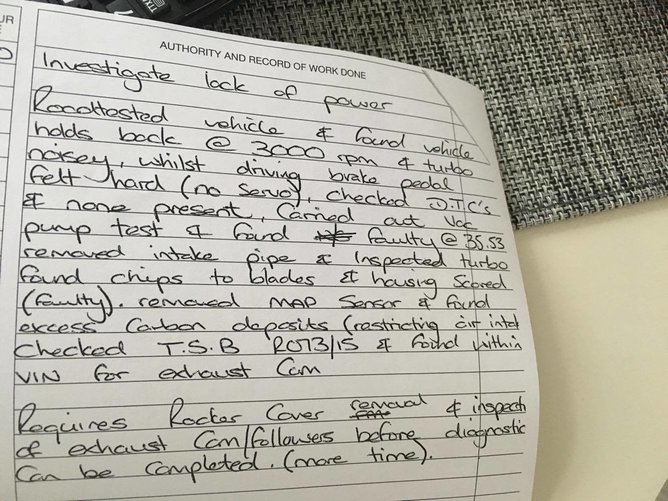 AUTHORITY AND RECORD OF WORK DONE
Investigate lack of power
Roadtested vehicle & found vehicle
holds back @ 3000 rpm & turbo
noisey, whilst driving brake pedal
felt hard (no servo), checked D.T.C's
& none present, Carried out Vac
pump test & found faulty @ 35.53
removed intake pipe & Inspected turbo
found chips to blades & housing Scored
(faulty). removed MAP Sensor & found
excess Carbon deposits (restricting air intak
Checked T.S.B 2073/15 & found within
VIN for exhaust Cam
Requires Rocker Cover removal & inspect
of exhaust Cam/followers before diagnostic
Can be completed. (more time).